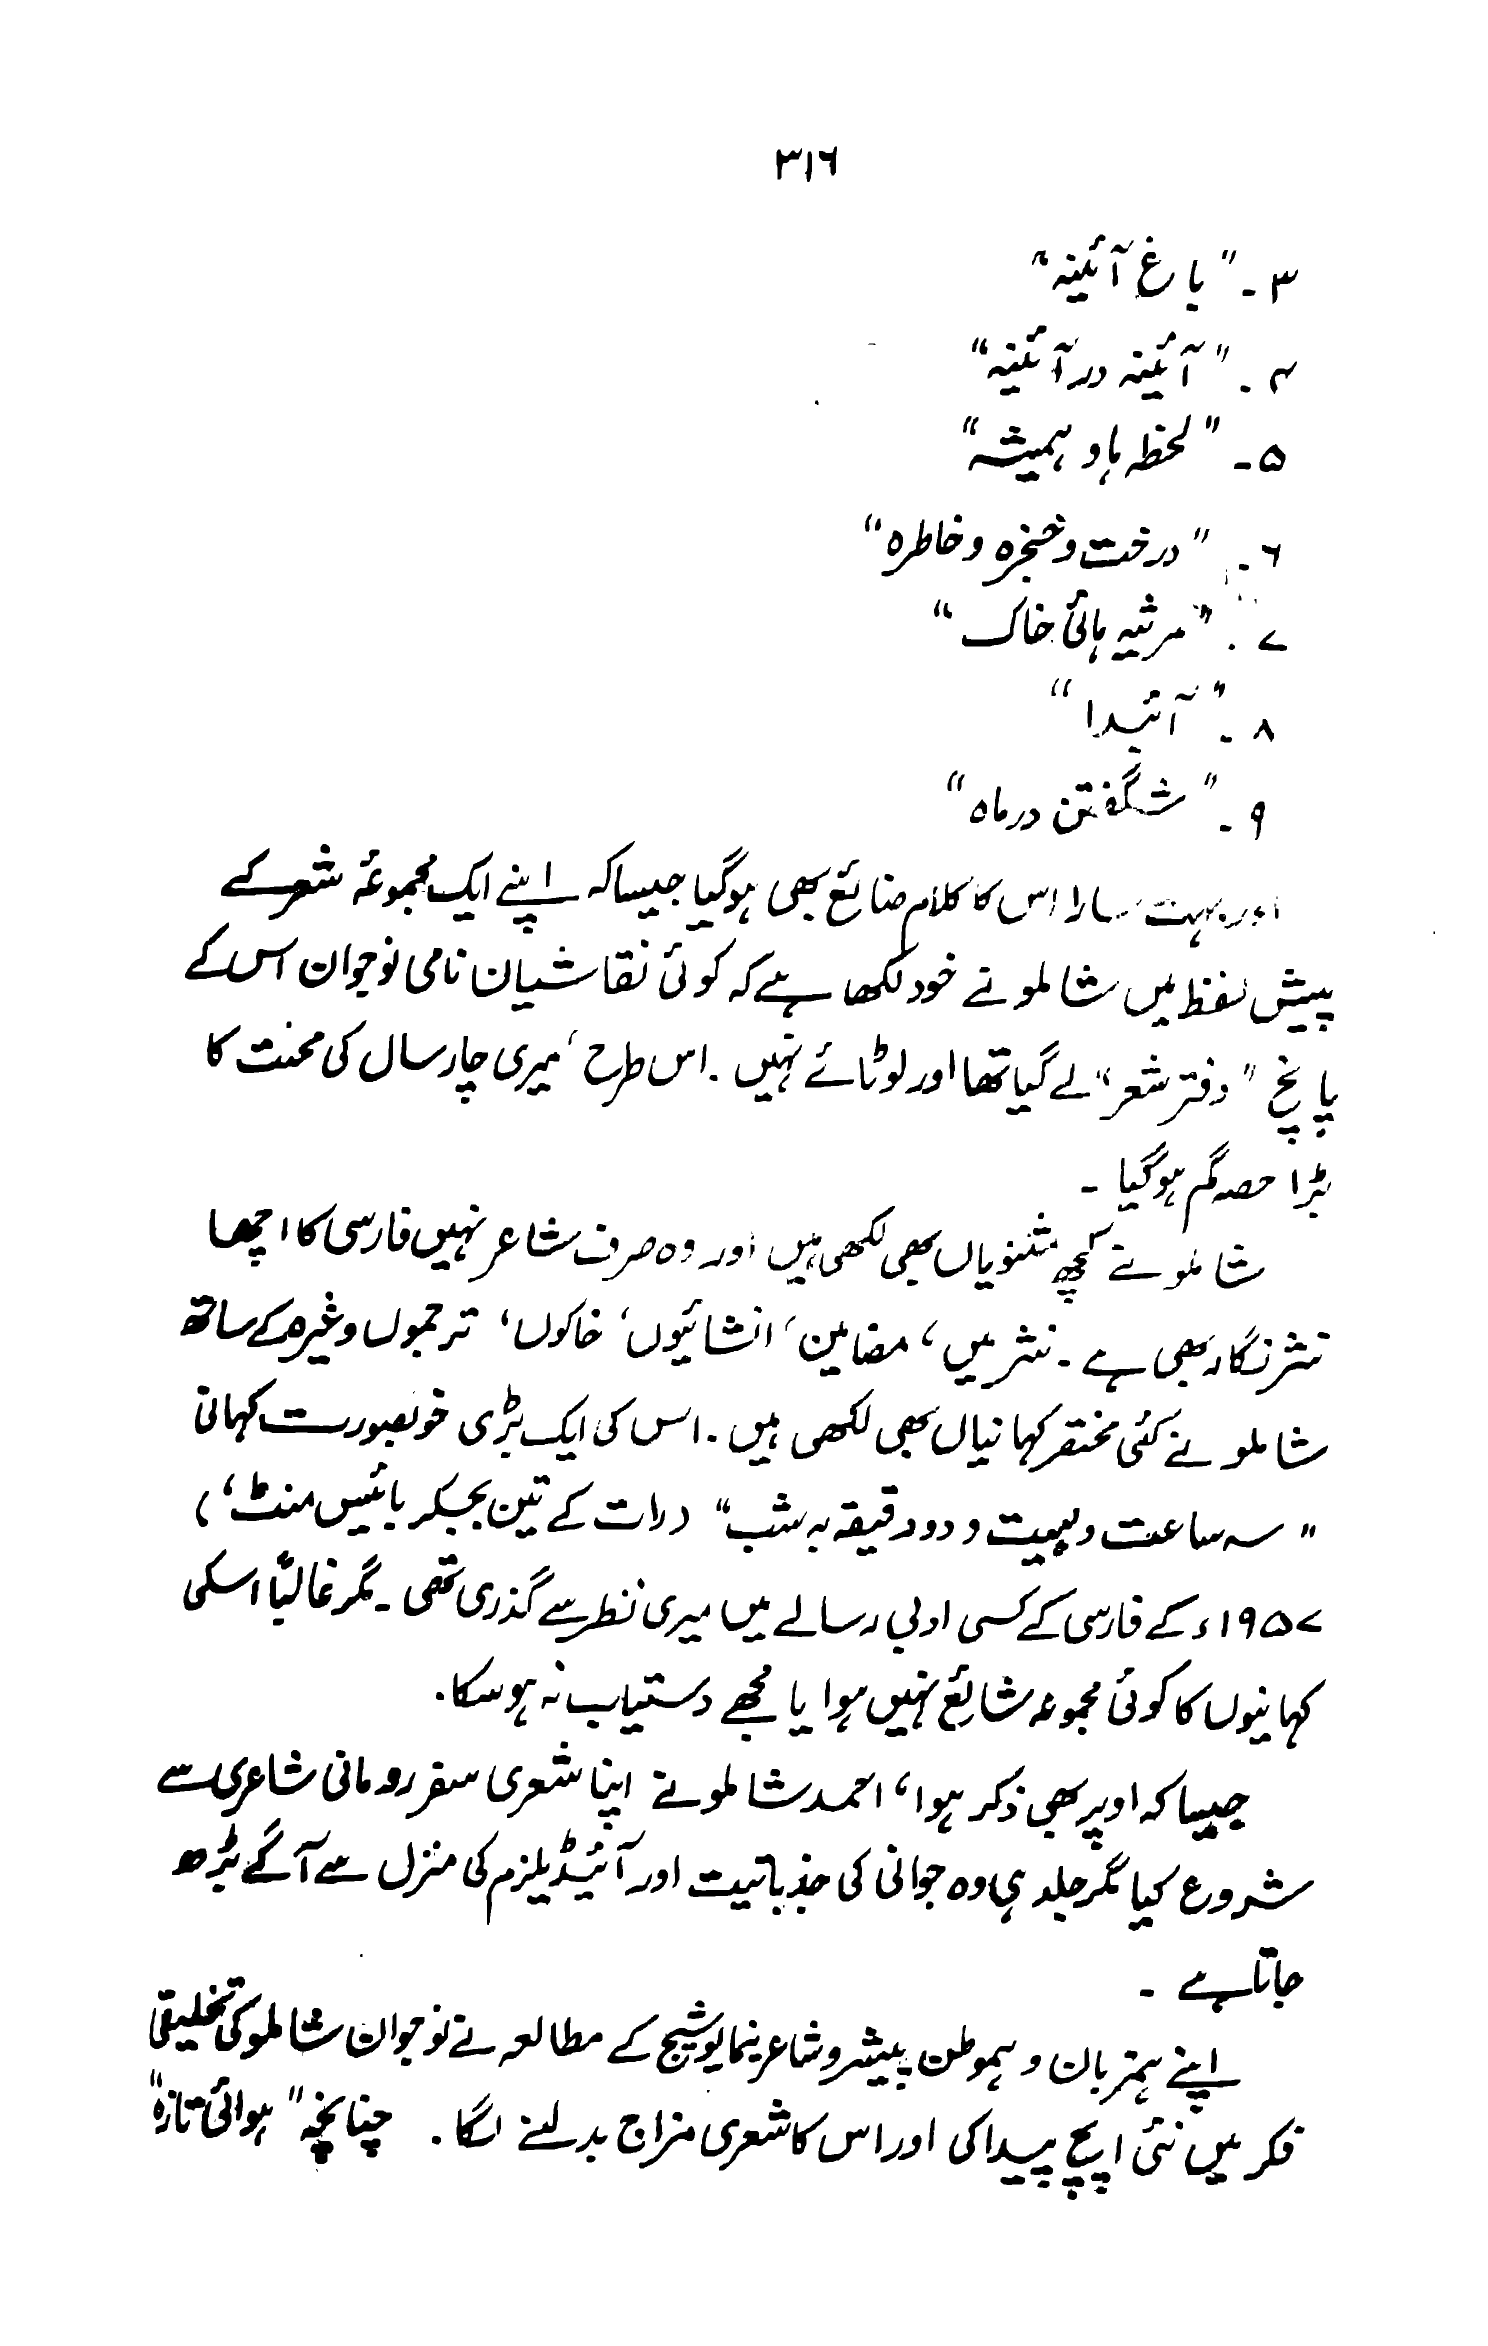 ۳۱۶
۳۔ "باغ آئینہ"
۴۔ "آئینہ در آئینہ"
۵۔ "لحظہ ہا و ہمیشہ"
۶۔ "درخت و خنجرہ و خاطرہ"
۷۔ "مرثیہ ہائی خاک"
۸۔ "آئیدا"
۹۔ "شگفتن در ماہ"
اور بہت سارا اس کا کلام ضائع بھی ہوگیا جیسا کہ اپنے ایک مجموعۂ شعر کے
پیش لفظ میں شاملو نے خود لکھا ہے کہ کوئی نقاشیان نامی نوجوان اس کے
پانچ "دفتر شعر" لے گیا تھا اور لوٹائے نہیں۔ اس طرح، میری چار سال کی محنت کا
بڑا حصہ گم ہوگیا۔
شاملو نے کچھ مثنویاں بھی لکھی ہیں اور وہ صرف شاعر نہیں فارسی کا اچھا
نثر نگار بھی ہے۔ نثر میں، مضامین، انشائیوں، خاکوں، ترجموں وغیرہ کے ساتھ
شاملو نے کئی مختصر کہانیاں بھی لکھی ہیں۔ اس کی ایک بڑی خوبصورت کہانی
"سہ ساعت و بیست و دو دقیقہ بہ شب" (رات کے تین بجکر بائیس منٹ،)
۱۹۵۷ء کے فارسی کے کسی ادبی رسالے میں میری نظر سے گذری تھی۔ مگر غالباً اسکی
کہانیوں کا کوئی مجموعہ شائع نہیں ہوا یا مجھے دستیاب نہ ہو سکا۔
جیسا کہ اوپر بھی ذکر ہوا، احمد شاملو نے اپنا شعری سفر رومانی شاعری سے
شروع کیا مگر جلد ہی وہ جوانی کی جذباتیت اور آئیڈیلزم کی منزل سے آگے بڑھ
جاتا ہے۔
اپنے ہمزبان و ہموطن پیشرو شاعر نیما یوشیج کے مطالعہ نے نوجوان شاملو کی تخلیقی
فکر میں نئی اپج پیدا کی اور اس کا شعری مزاج بدلنے لگا۔ چنانچہ "ہوائی تازہ"